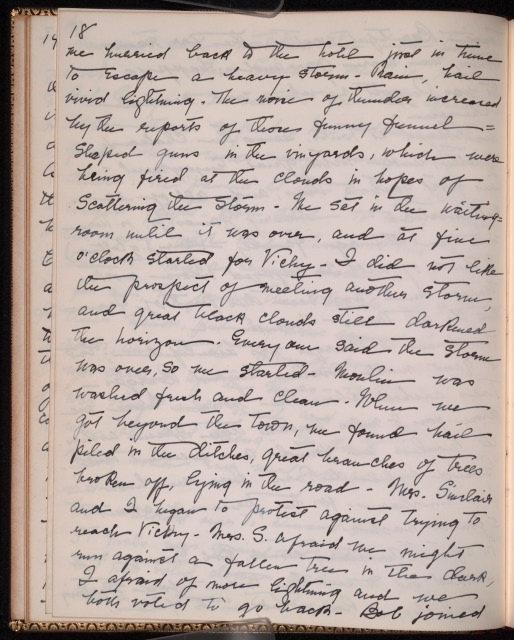 18
we hurried back to the hotel just in time
to escape a heavy storm - Rain, hail
vivid lightning. The noise of thunder increased
by the reports of those funny funnel=
shaped guns in the vineyards, which were
being fired at the clouds in hopes of
scattering the storm - We sat in the waiting=
room until it was over, and at five
o'clock started for Vichy - I did not like
the prospect of meeting another storm,
and great black clouds still darkened
the horizon. Everyone said the storm
was over, so we started - Moulin was
washed fresh and clean - When we
got beyond the town, we found hail
piled in the ditches, great branches of trees
broken off, lying in the road - Mrs. Sinclair
and I began to protest against trying to
reach Vichy - Mrs. S. afraid we might
run against a fallen tree in the dark,
I afraid of more lightning and we
both voted to go back - Bob joined